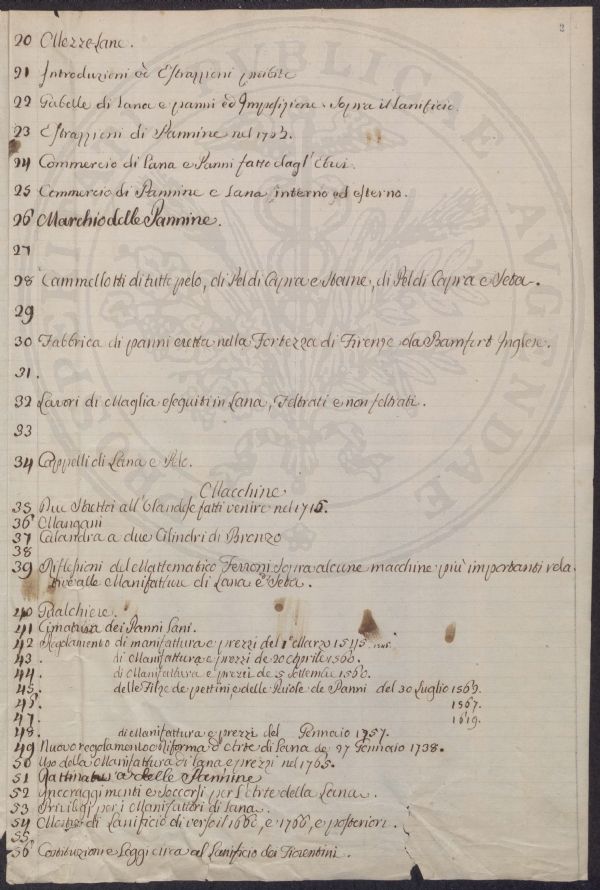 2
20 Mezze Lane.
21 Introduzioni ed Estrazzioni proibite
22 Gabelle di Lana e panni ed Imposizione sopra il Lanificio.
23 Estrazzioni di Pannine nel 1703.
24 Commercio di Lana e Panni fatto dagl'Ebrei.
25 Commercio di Pannine e Lana, interno ed esterno.
26 Marchio delle Pannine.
27
28 Cammellotti di tutto pelo, di Pel di Capra e Stame, di Pel di Capra e Seta.
29
30 Fabbrica di panni eretta nella Fortezza di Firenze da Bamfert Inglese.
31.
32 Lavori di Maglia eseguiti in Lana, Feltrati e non feltrati.
33
34 Cappelli di Lana e Pelo.
Macchine
35 Due Strettoi all'Olandese fatti venire nel 1715.
36 Mangani
37 Calandra a due Cilindri di Bronzo
38
39 Riflessioni del Mattematico Ferroni sopra alcune macchine più importanti rela
tive alle Manifatture di Lana e Seta.
40 Gualchiere.
41 Cimatura dei Panni Lani.
42 Regolamento di manifattura e prezzi del 1º Marzo
43. di Manifattura e prezzi de 20 Aprile 1560.
44. di Manifattura e prezzi de 5 Settembre 1560.
45. delle Filze de pettini, e delle Ruiole de Panni del 30 Luglio
46. 1567.
47. 1619.
48. di Manifattura e prezzi del Gennaio 1757.
49 Nuovo regolamento o Riforma d'Arte di Lana de 27 Gennaio 1738.
50 Uso della Manifattura di Lana e prezzi nel 1765.
51 delle Pannine
52 Incoraggimenti e Soccorsi per l'Arte della Lana.
53 Privilegi per i Manifattori di Lana.
54 di Lanificio di verso il 1660, e 1766, e posteriori.
55.
56 Costituzioni e Leggi circa al Lanificio dei Fiorentini.